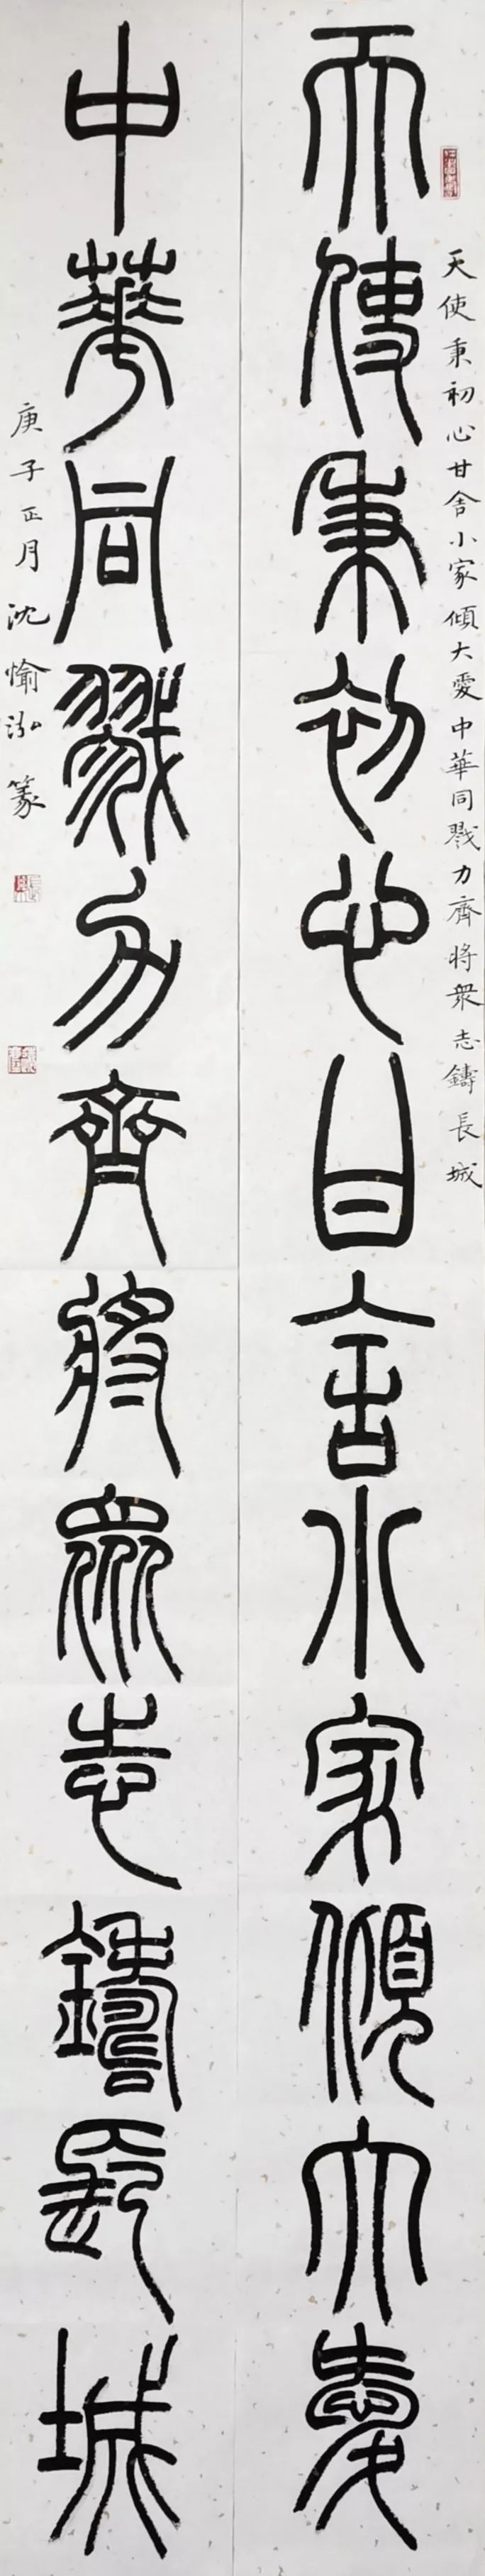 天使秉初心甘舍小家傾大愛中華同戮力齊將眾志鑄長城
天使秉初心甘舍小家傾大愛
中華同戮力齊將眾志鑄長城
庚子正月沈愉泓篆